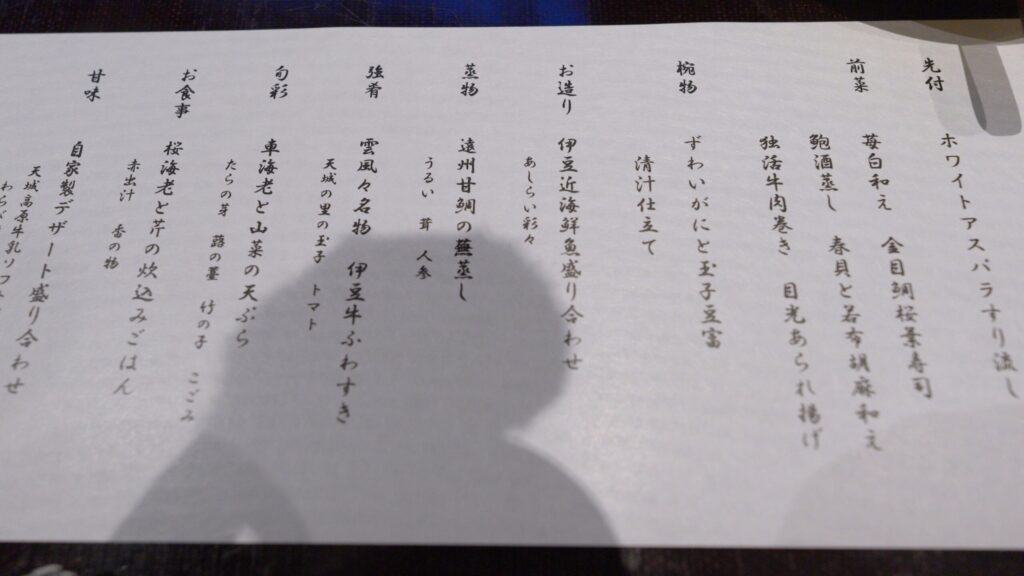 先付
ホワイトアスパラすり流し
前菜
苺白和え 金目鯛桜葉寿司
鮑酒蒸し 春貝と若布胡麻和え
独活牛肉巻き 目光あられ揚げ
椀物
ずわいがにと玉子豆富
清汁仕立て
お造り
伊豆近海鮮魚盛り合わせ
あしらい彩々
蒸物
遠州甘鯛の蕪蒸し
うるい 茸 人参
強肴
雲風々名物 伊豆牛ふわすき
天城の里の玉子 トマト
旬彩
車海老と山菜の天ぷら
たらの芽 蕗の薹 竹の子 こごみ
お食事
桜海老と芹の炊込みごはん
赤出汁 香の物
甘味
自家製デザート盛り合わせ
天城高原牛乳ソフト